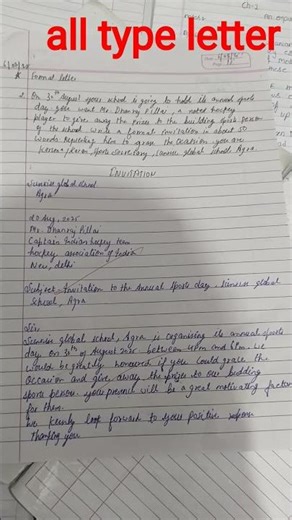 all type letter
Formal letter
2. On 30th August your school is going to hold its annual sports
day. You want Mr. Dhanraj Pillai, a noted hockey
player to give away the prizes to the budding sports person
of the school. Write a formal invitation in about 50
words requesting him to grace the occasion. you are
sports secretary, Sunrise global school, Agra.
INVITATION
Sunrise global school
Agra
20 Aug, 2025
Mr. Dhanraj Pillai
Captain Indian hockey team
hockey association of India
New, delhi
Subject - Invitation to the Annual sports day. Sunrise global
School, Agra
Sir,
Sunrise global school, Agra is organising its annual sports
day on 30th of August between 4pm and 6pm. we
would be greatly honoured if you could grace the
occasion and give away the prizes to our budding
sports person. your presence will be a great motivating factor
for them.
we keenly look forward to your positive
Thanking you